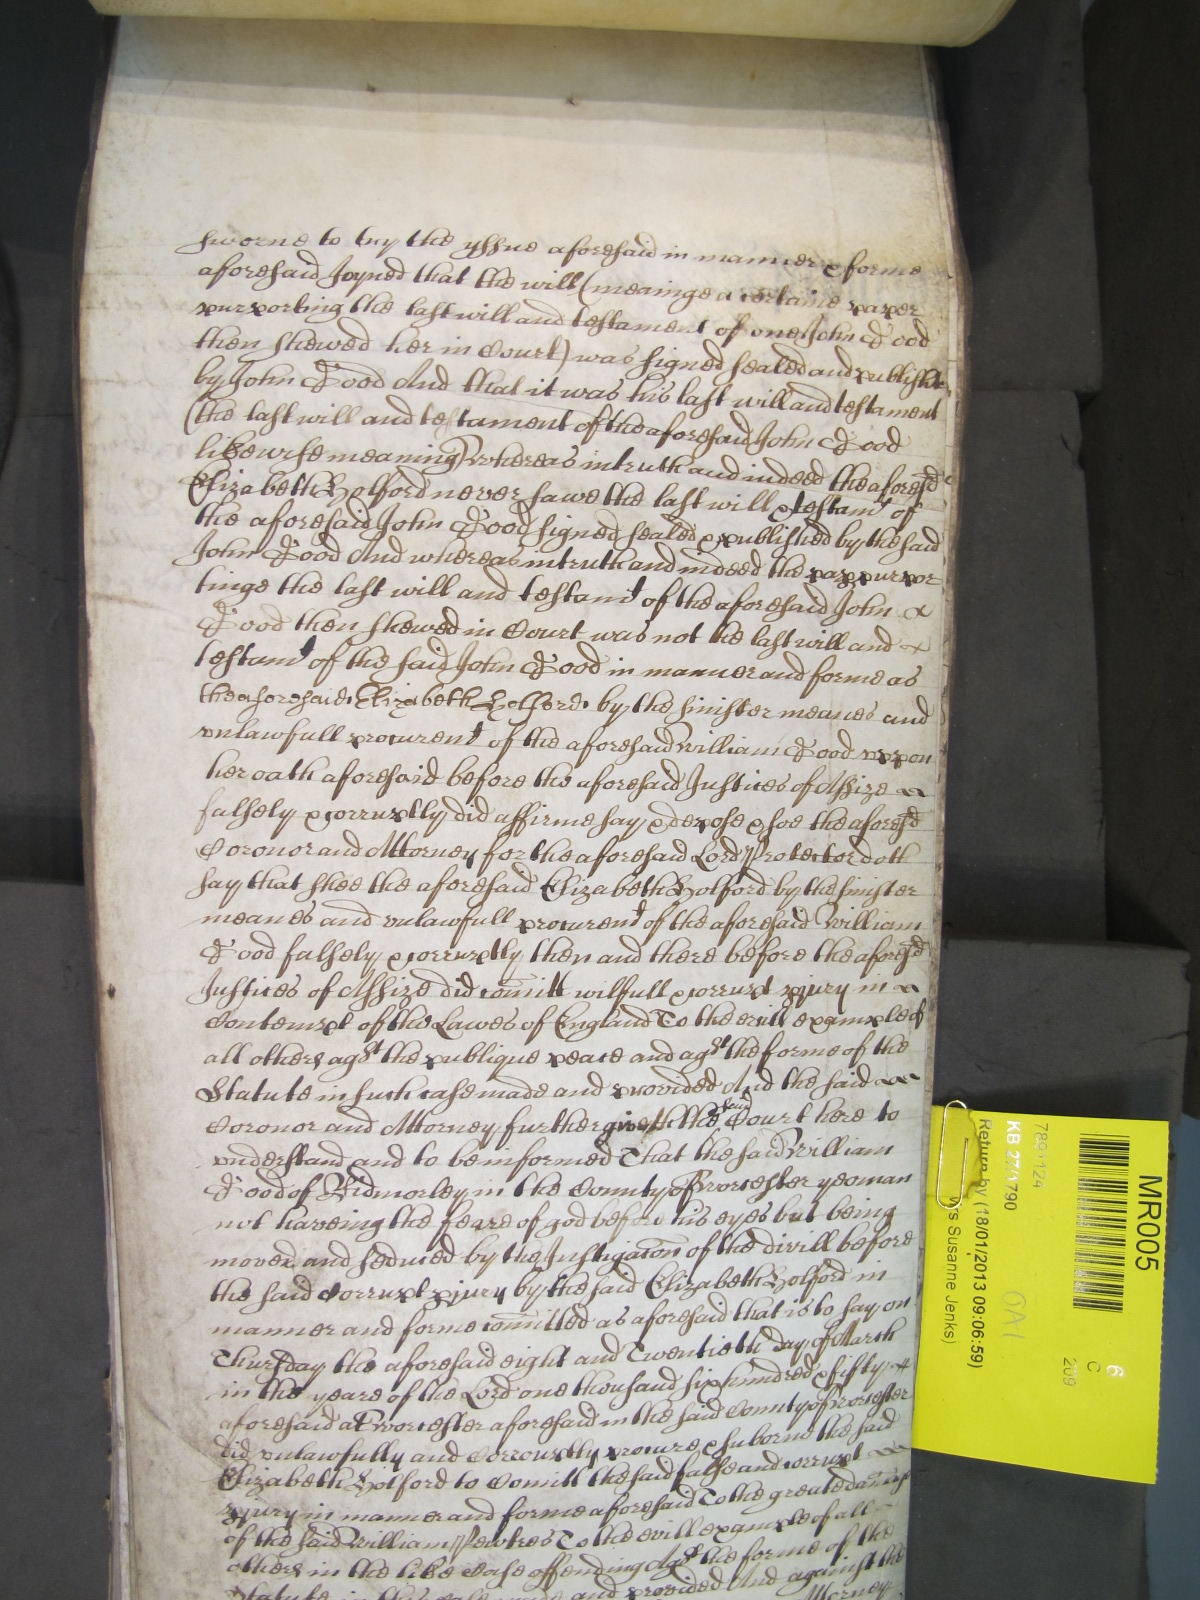 sworne to try the yssue aforesaid in manner & forme
aforesaid Joyned that the will (meaninge a certaine paper
purporting the last will and testament of one John Good
then shewed her in Court) was signed sealed and publish
by John Good And that it was his last will and testament
(the last will and testament of the aforesaid John Good
likewise meaning) whereas in truth and indeed the aforesd
Elizabeth Holford never sawe the last will & testamt of
the aforesaid John Good signed sealed & published by the said
John Good And whereas in truth and indeed the pap purpor
tinge the last will and testamt of the aforesaid John
Good then shewed in Court was not the last will and
testamt of the said John Good in manner and forme as
the aforesaid Elizabeth Holford by the sinister meanes and
unlawfull procuremt of the aforesaid William Good uppon
her oath aforesaid before the aforesaid Justices of Assize
falsely & corruptly did affirme say & depose & soe the aforesd
Coronor and Attorney for the aforesaid Lord Protector doth
say that shee the aforesaid Elizabeth Holford by the sinister
meanes and unlawfull procuremt of the aforesaid William
Good falsely & corruptly then and there before the aforesd
Justices of Assize did comitt wilfull & corrupt pjury in
Contempt of the Lawes of England To the evill example of
all others agst the publique peace and agst the forme of the
Statute in such case made and provided And the said
Coronor and Attorney further giveth the said Court here to
understand and to be informed That the said William
Good of Ridmorley in the County of Worcester yeoman
not haveing the feare of god before his eyes but being
moved and seduced by the Instigacon of the divill before
the said Corrupt pjury by the said Elizabeth Holford in
manner and forme comitted as aforesaid that is to say on
Thursday the aforesaid eight and Twentieth day of March
in the yeare of the Lord one thousand six hundred & fifty
aforesaid at Worcester aforesaid in the said County of Worcester
did unlawfully and Corruptly procure & suborne the said
Elizabeth Holford to Comitt the said false and corrupt
pjury in manner and forme aforesaid To the great damage
of the said William Pewtres To the evill example of all
others in the like Case offending Agst the forme of the
Statute in this case made and provided And against the
Attorney
MR005
6
C
209
789124
KB 27/1790
Return by (18/01/2013 09:06:59)
s Susanne Jenks)